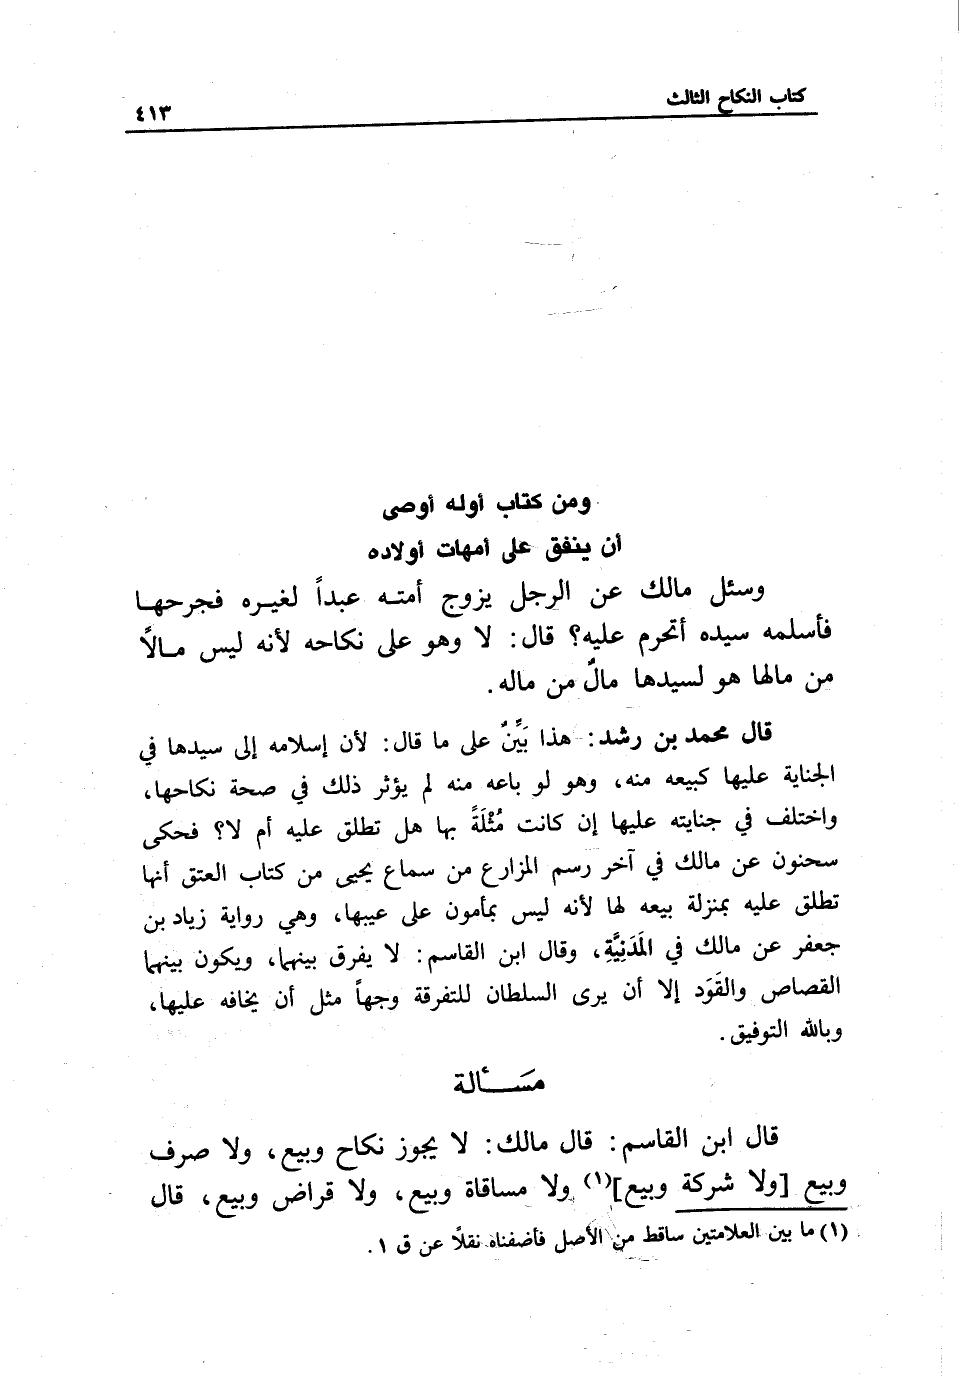 كتاب النكاح الثالث
٤١٣
ومن كتاب أوله أوصى
أن ينفق على أمهات أولاده
وسئل مالك عن الرجل يزوج أمته عبداً لغيره فجرحها
فأسلمه سيده أتحرم عليه؟ قال: لا وهو على نكاحه لأنه ليس مالاً
من مالها هو لسيدها مالٌ من ماله.
قال محمد بن رشد: هذا بَيِّنٌ على ما قال: لأن إسلامه إلى سيدها في
الجناية عليها كبيعه منه، وهو لو باعه منه لم يؤثر ذلك في صحة نكاحها،
واختلف في جنايته عليها إن كانت مُثْلَةً بها هل تطلق عليه أم لا؟ فحكى
سحنون عن مالك في آخر رسم المزارع من سماع يحيى من كتاب العتق أنها
تطلق عليه بمنزلة بيعه لها لأنه ليس بمأمون على عيبها، وهي رواية زياد بن
جعفر عن مالك في المَدَنِيَّةِ، وقال ابن القاسم: لا يفرق بينهما، ويكون بينهما
القصاص والقَوَد إلا أن يرى السلطان للتفرقة وجهاً مثل أن يخافه عليها،
وبالله التوفيق.
مَسْـــأَلة
قال ابن القاسم: قال مالك: لا يجوز نكاح وبيع، ولا صرف
وبيع [ولا شركة وبيع](١) ولا مساقاة وبيع، ولا قراض وبيع، قال
(١) ما بين العلامتين ساقط من الأصل فأضفناه نقلاً عن ق ١.